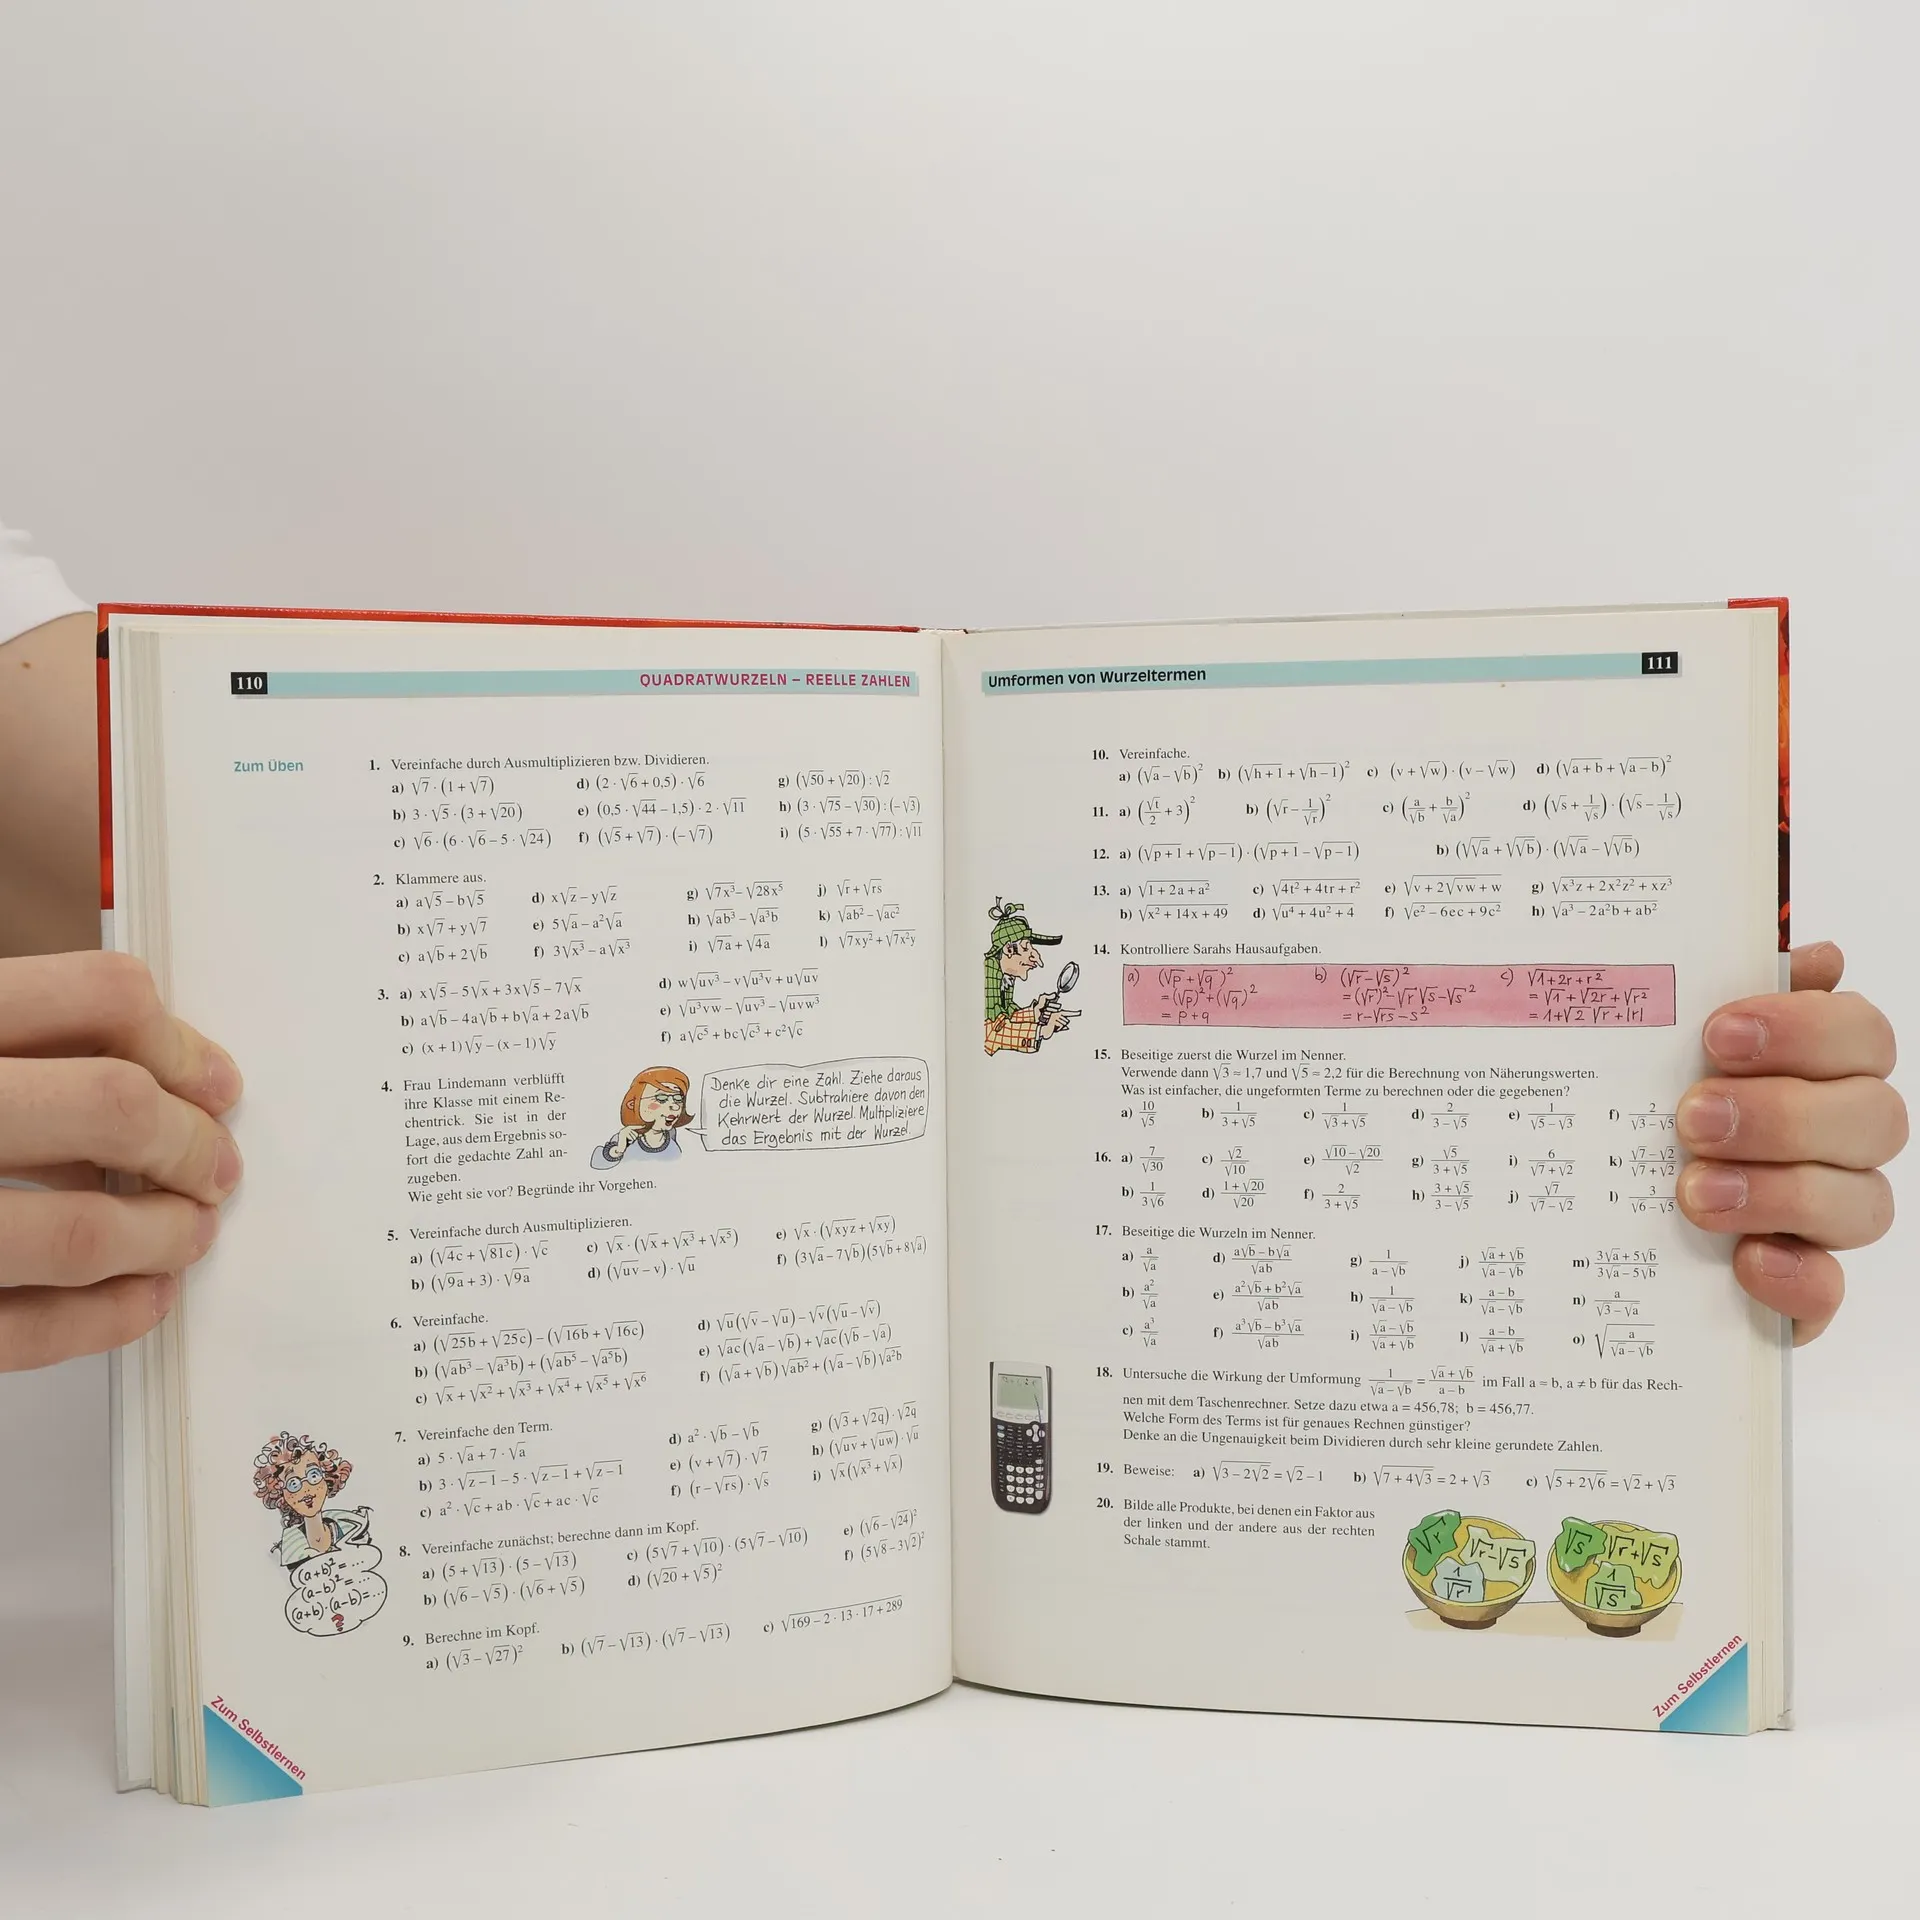 110
QUADRATWURZELN – REELLE ZAHLEN
Zum Üben
1. Vereinfache durch Ausmultiplizieren bzw. Dividieren.
a) √7 · (1 + √7)
d) (2 · √6 + 0,5) · √6
g) (√50 + √20) : √2
b) 3 · √5 · (3 + √20)
e) (0,5 · √44 – 1,5) · 2 · √11
h) (3 · √75 – √30) : (–√3)
c) √6 · (6 · √6 – 5 · √24)
f) (√5 + √7) · (–√7)
i) (5 · √55 + 7 · √77) : √11
2. Klammere aus.
a) a√5 – b√5
d) x√z – y√z
g) √7x³ – √28x⁵
j) √r + √rs
b) x√7 + y√7
e) 5√a – a²√a
h) √ab³ – √a³b
k) √ab² – √ac²
c) a√b + 2√b
f) 3√x³ – a√x³
i) √7a + √4a
l) √7xy² + √7x²y
3. a) x√5 – 5√x + 3x√5 – 7√x
d) w√uv³ – v√u³v + u√uv
b) a√b – 4a√b + b√a + 2a√b
e) √u³vw – √uv³ – √uvw³
c) (x + 1)√y – (x – 1)√y
f) a√c⁵ + bc√c³ + c²√c
4. Frau Lindemann verblüfft
ihre Klasse mit einem Re-
chentrick. Sie ist in der
Lage, aus dem Ergebnis so-
fort die gedachte Zahl an-
zugeben.
Wie geht sie vor? Begründe ihr Vorgehen.
Denke dir eine Zahl. Ziehe daraus
die Wurzel. Subtrahiere davon den
Kehrwert der Wurzel. Multipliziere
das Ergebnis mit der Wurzel.
5. Vereinfache durch Ausmultiplizieren.
a) (√4c + √81c) · √c
c) √x · (√x + √x³ + √x⁵)
e) √x · (√xyz + √xy)
b) (√9a + 3) · √9a
d) (√uv – v) · √u
f) (3√a – 7√b)(5√b + 8√a)
6. Vereinfache.
a) (√25b + √25c) – (√16b + √16c)
d) √u(√v – √u) – √v(√u – √v)
b) (√ab³ – √a³b) + (√ab⁵ – √a⁵b)
e) √ac(√a – √b) + √ac(√b – √a)
c) √x + √x² + √x³ + √x⁴ + √x⁵ + √x⁶
f) (√a + √b)√ab² + (√a – √b)√a²b
7. Vereinfache den Term.
a) 5 · √a + 7 · √a
d) a² · √b – √b
g) (√3 + √2q) · √2q
b) 3 · √z–1 – 5 · √z–1 + √z–1
e) (v + √7) · √7
h) (√uv + √uw) · √u
c) a² · √c + ab · √c + ac · √c
f) (r – √rs) · √s
i) √x(√x³ + √x)
8. Vereinfache zunächst; berechne dann im Kopf.
a) (5 + √13) · (5 – √13)
c) (5√7 + √10) · (5√7 – √10)
e) (√6 – √24)²
b) (√6 – √5) · (√6 + √5)
d) (√20 + √5)²
f) (5√8 – 3√2)²
(a+b)² = ...
(a–b)² = ...
(a+b)·(a–b)=...
?
9. Berechne im Kopf.
a) (√3 – √27)²
b) (√7 – √13) · (√7 – √13)
c) √169 – 2 · 13 · 17 + 289
Zum Selbstlernen
Umformen von Wurzeltermen
111
10. Vereinfache.
a) (√a – √b)² b) (√h+1 + √h–1)² c) (v + √w) · (v – √w) d) (√a+b + √a–b)²
11. a) (√t/2 + 3)² b) (√r – 1/√r)² c) (a/√b + b/√a)² d) (√s + 1/√s) · (√s – 1/√s)
12. a) (√p+1 + √p–1) · (√p+1 – √p–1) b) (√√a + √√b) · (√√a – √√b)
13. a) √1 + 2a + a² c) √4t² + 4tr + r² e) √v + 2√vw + w g) √x³z + 2x²z² + xz³
b) √x² + 14x + 49 d) √u⁴ + 4u² + 4 f) √e² – 6ec + 9c² h) √a³ – 2a²b + ab²
14. Kontrolliere Sarahs Hausaufgaben.
a) (√p + √q)² b) (√r – √s)² c) √1 + 2r + r²
= (√p)² + (√q)² = (√r)² – √r √s – √s² = √1 + √2r + √r²
= p + q = r – √rs – s² = 1 + √2 √r + |r|
15. Beseitige zuerst die Wurzel im Nenner.
Verwende dann √3 ≈ 1,7 und √5 ≈ 2,2 für die Berechnung von Näherungswerten.
Was ist einfacher, die ungeformten Terme zu berechnen oder die gegebenen?
a) 10/√5 b) 1/(3 + √5) c) 1/(√3 + √5) d) 2/(3 – √5) e) 1/(√5 – √3) f) 2/(√3 – √5)
16. a) 7/√30 c) √2/√10 e) (√10 – √20)/√2 g) √5/(3 + √5) i) 6/(√7 + √2) k) (√7 – √2)/(√7 + √2)
b) 1/(3√6) d) (1 + √20)/√20 f) 2/(3 + √5) h) (3 + √5)/(3 – √5) j) √7/(√7 – √2) l) 3/(√6 – √5)
17. Beseitige die Wurzeln im Nenner.
a) a/√a d) (a√b – b√a)/√ab g) 1/(a – √b) j) (√a + √b)/(√a – √b) m) (3√a + 5√b)/(3√a – 5√b)
b) a²/√a e) (a²√b + b²√a)/√ab h) 1/(√a – √b) k) (a – b)/(√a – √b) n) a/(√3 – √a)
c) a³/√a f) (a³√b – b³√a)/√ab i) (√a – √b)/(√a + √b) l) (a – b)/(√a + √b) o) √(a/(√a – √b))
18. Untersuche die Wirkung der Umformung 1/(√a – √b) = (√a + √b)/(a – b) im Fall a ≈ b, a ≠ b für das Rech-
nen mit dem Taschenrechner. Setze dazu etwa a = 456,78; b = 456,77.
Welche Form des Terms ist für genaues Rechnen günstiger?
Denke an die Ungenauigkeit beim Dividieren durch sehr kleine gerundete Zahlen.
19. Beweise: a) √3 – 2√2 = √2 – 1 b) √7 + 4√3 = 2 + √3 c) √5 + 2√6 = √2 + √3
20. Bilde alle Produkte, bei denen ein Faktor aus
der linken und der andere aus der rechten
Schale stammt.
√r √r – √s 1/√r
√s √r + √s 1/√s
Zum Selbstlernen